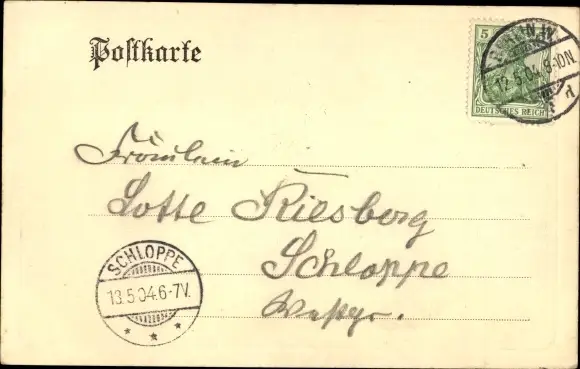 Postkarte
5
DEUTSCHES REICH
BERLIN W.
12.5.04.8-9N.
Fräulein
Lotte Riesberg
Schloppe
Westpr.
SCHLOPPE
13.5.04.6-7V.
* * *